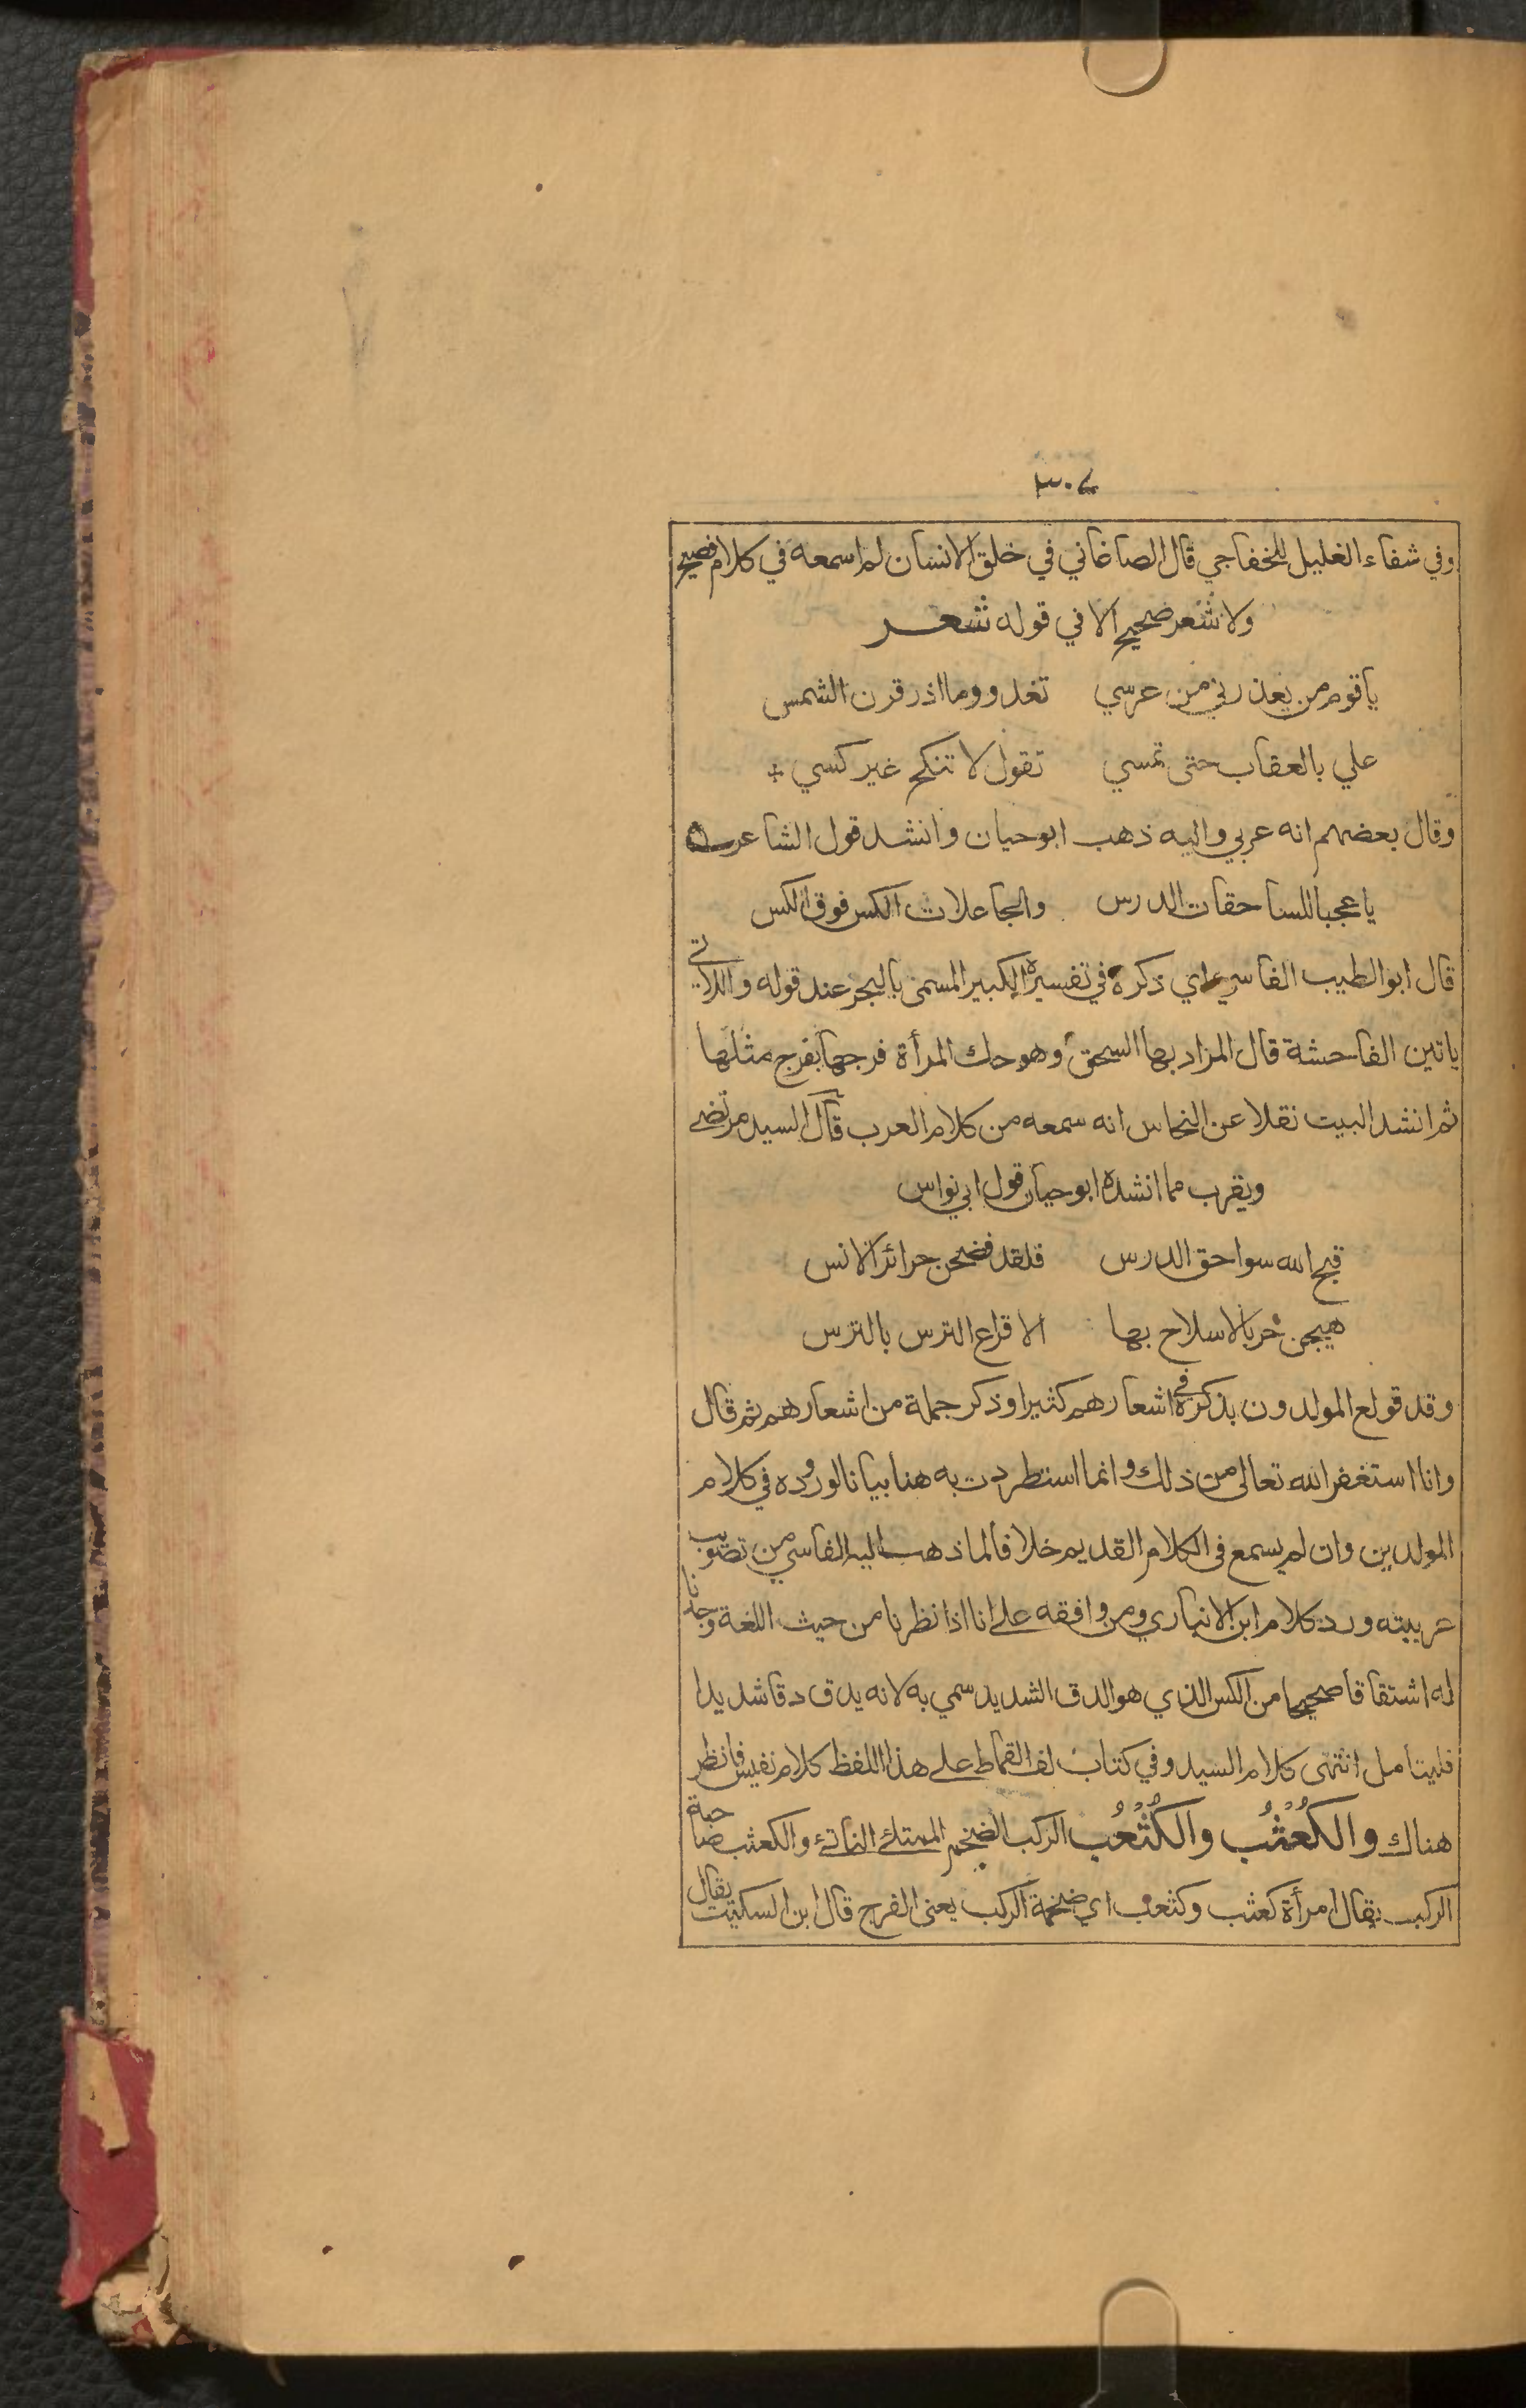 ٣٠٤
وفي شفاء الغليل للخفاجي قال الصاغاني في خلق الانسان لم اسمعه في كلام فصيح
ولا شعر صحيح الا في قوله شعر
ياقوم من يعذرني من عرسي تغدو وما اذر قرن الشمس
علي بالعقاب حتى تمسي تقول لا تنكح غير كسي
وقال بعضهم انه عربي واليه ذهب ابوحيان وانشد قول الشاعر
يا عجبا للساحقات الدرس والجاعلات الكس فوق الكس
قال ابوالطيب الفاسي اي ذكره في تفسيره الكبير المسمى بالبحر عند قوله واللاتي
ياتين الفاحشة قال المراد بها السحق وهو حك المرأة فرجها بفرج مثلها
ثم انشد البيت نقلا عن النحاس انه سمعه من كلام العرب قال السيد مرتضى
ويقرب مما انشده ابوحيان قول ابي نواس
قبح الله سواحق الدرس فلقد فضحن حرائر الانس
هيجن حربا لاسلاح بها الا قراع الترس بالترس
وقد تولع المولدون بذكره في اشعارهم كثيرا وذكر جملة من اشعارهم ثم قال
وانا استغفر الله تعالى من ذلك وانما استطردت به هنا بيانا لوروده في كلام
المولدين وان لم يسمع فى الكلام القديم خلافا لما ذهب اليه الفاسي من تصويب
عربيته ورد كلام ابن الانباري ومن وافقه على انا اذا نظرنا من حيث اللغة وجدنا
له اشتقاقا صحيحا من الكس الذي هو الدق الشديد سمي به لانه يدق دقا شديدا
فليتأمل انتهى كلام السيد وفي كتاب لف القماط على هذا اللفظ كلام نفيس فانظر
هناك والكَعْثُب والكَثْعُب الركب الضخم الممتلئ الناتئ والكعثب صاحبة
الركب يقال امرأة كعثب وكثعب اي ضخمة الركب يعنى الفرج قال ابن السكيت يقال